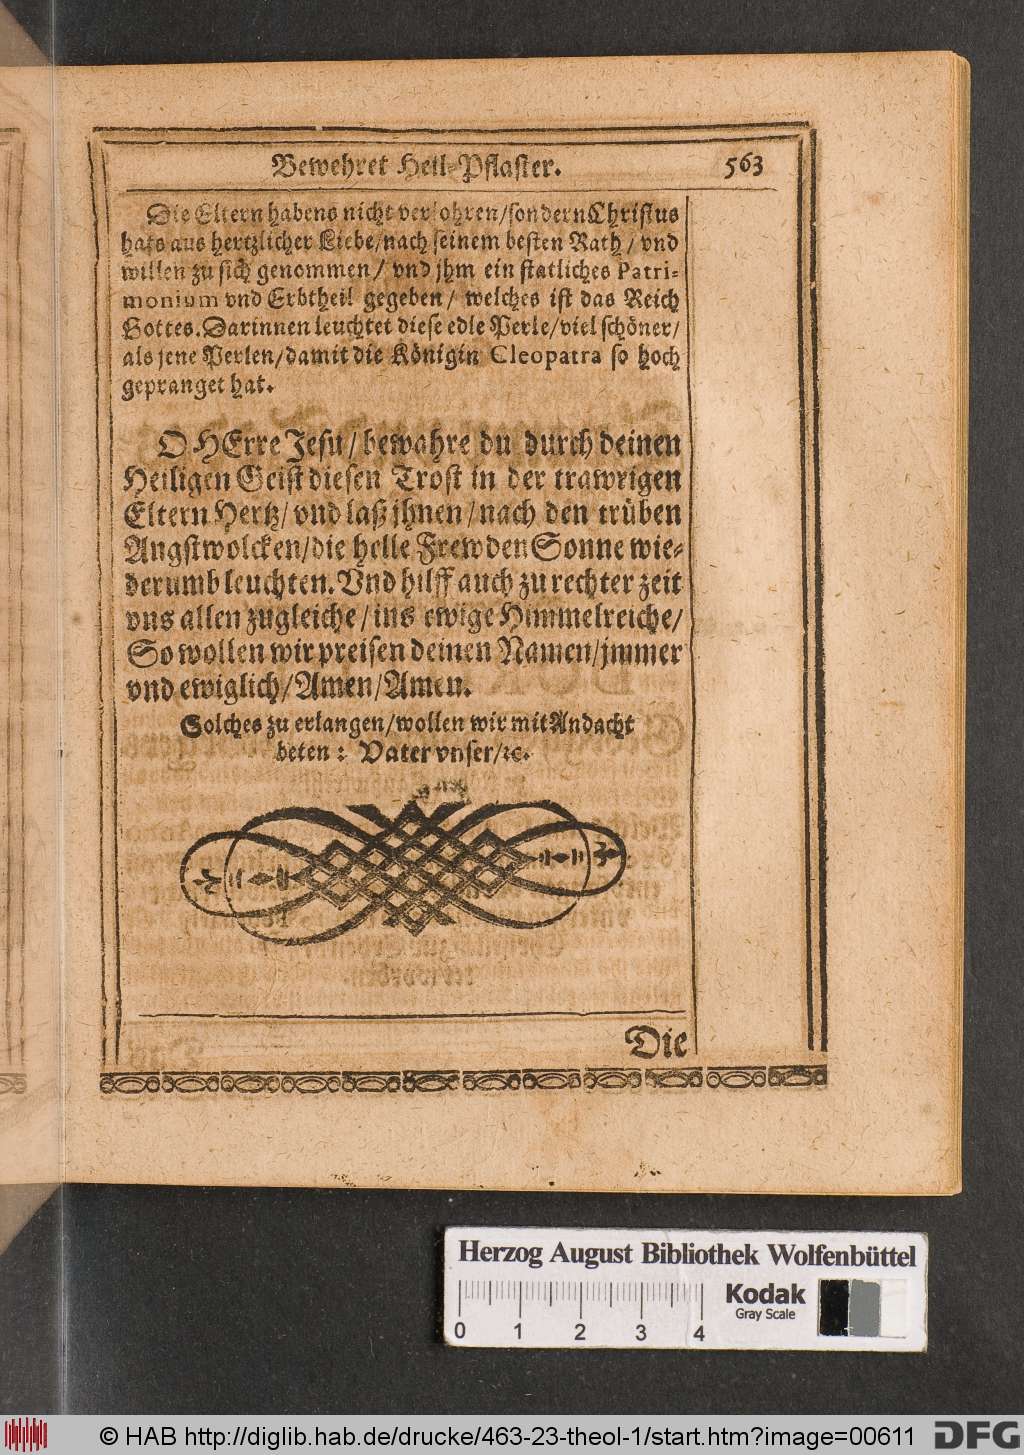 Bewehret Heil-Pflaster. 563
Die Eltern habens nicht verlohren/sondern Christus
hats aus hertzlicher Liebe/nach seinem besten Rath/vnd
willen zu sich genommen/vnd jhm ein statliches Patri-
monium vnd Erbtheil gegeben/ welches ist das Reich
Gottes. Darinnen leuchtet diese edle Perle/viel schöner/
als jene Perlen/damit die Königin Cleopatra so hoch
gepranget hat.
O HErre Jesu/bewahre du durch deinen
Heiligen Geist diesen Trost in der trawrigen
Eltern Hertz/vnd laß jhnen/nach den trüben
Angstwolcken/die helle Frewden Sonne wie-
derumb leuchten. Vnd hilff auch zu rechter zeit
vns allen zugleiche/ins ewige Himmelreiche/
So wollen wir preisen deinen Namen/jmmer
vnd ewiglich/Amen/Amen.
Solches zu erlangen/wollen wir mit Andacht
beten: Vater vnser/ꝛc.
Die
Herzog August Bibliothek Wolfenbüttel
Kodak
Gray Scale
0 1 2 3 4
© HAB http://diglib.hab.de/drucke/463-23-theol-1/start.htm?image=00611
DFG